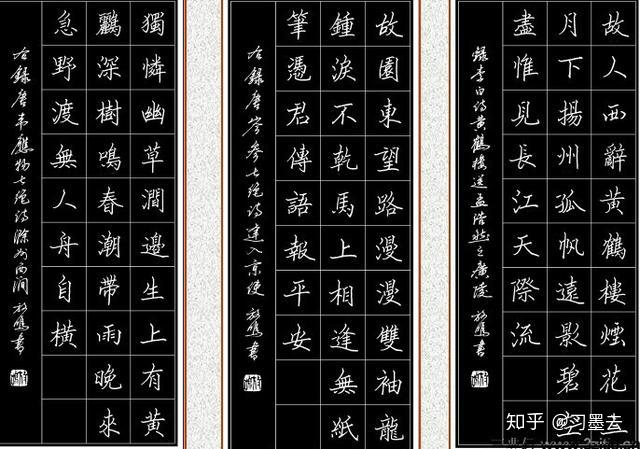 故人西辭黃鶴樓煙花三
月下揚州孤帆遠影碧空
盡惟見長江天際流
錄李白詩黃鶴樓送孟浩然之廣陵 書
故園東望路漫漫雙袖龍
鍾淚不乾馬上相逢無紙
筆憑君傳語報平安
右錄唐岑參七絕詩逢入京使 書
獨憐幽草澗邊生上有黃
鸝深樹鳴春潮帶雨晚來
急野渡無人舟自橫
右錄唐韋應物七絕詩滁州西澗 書
知乎 @习墨去